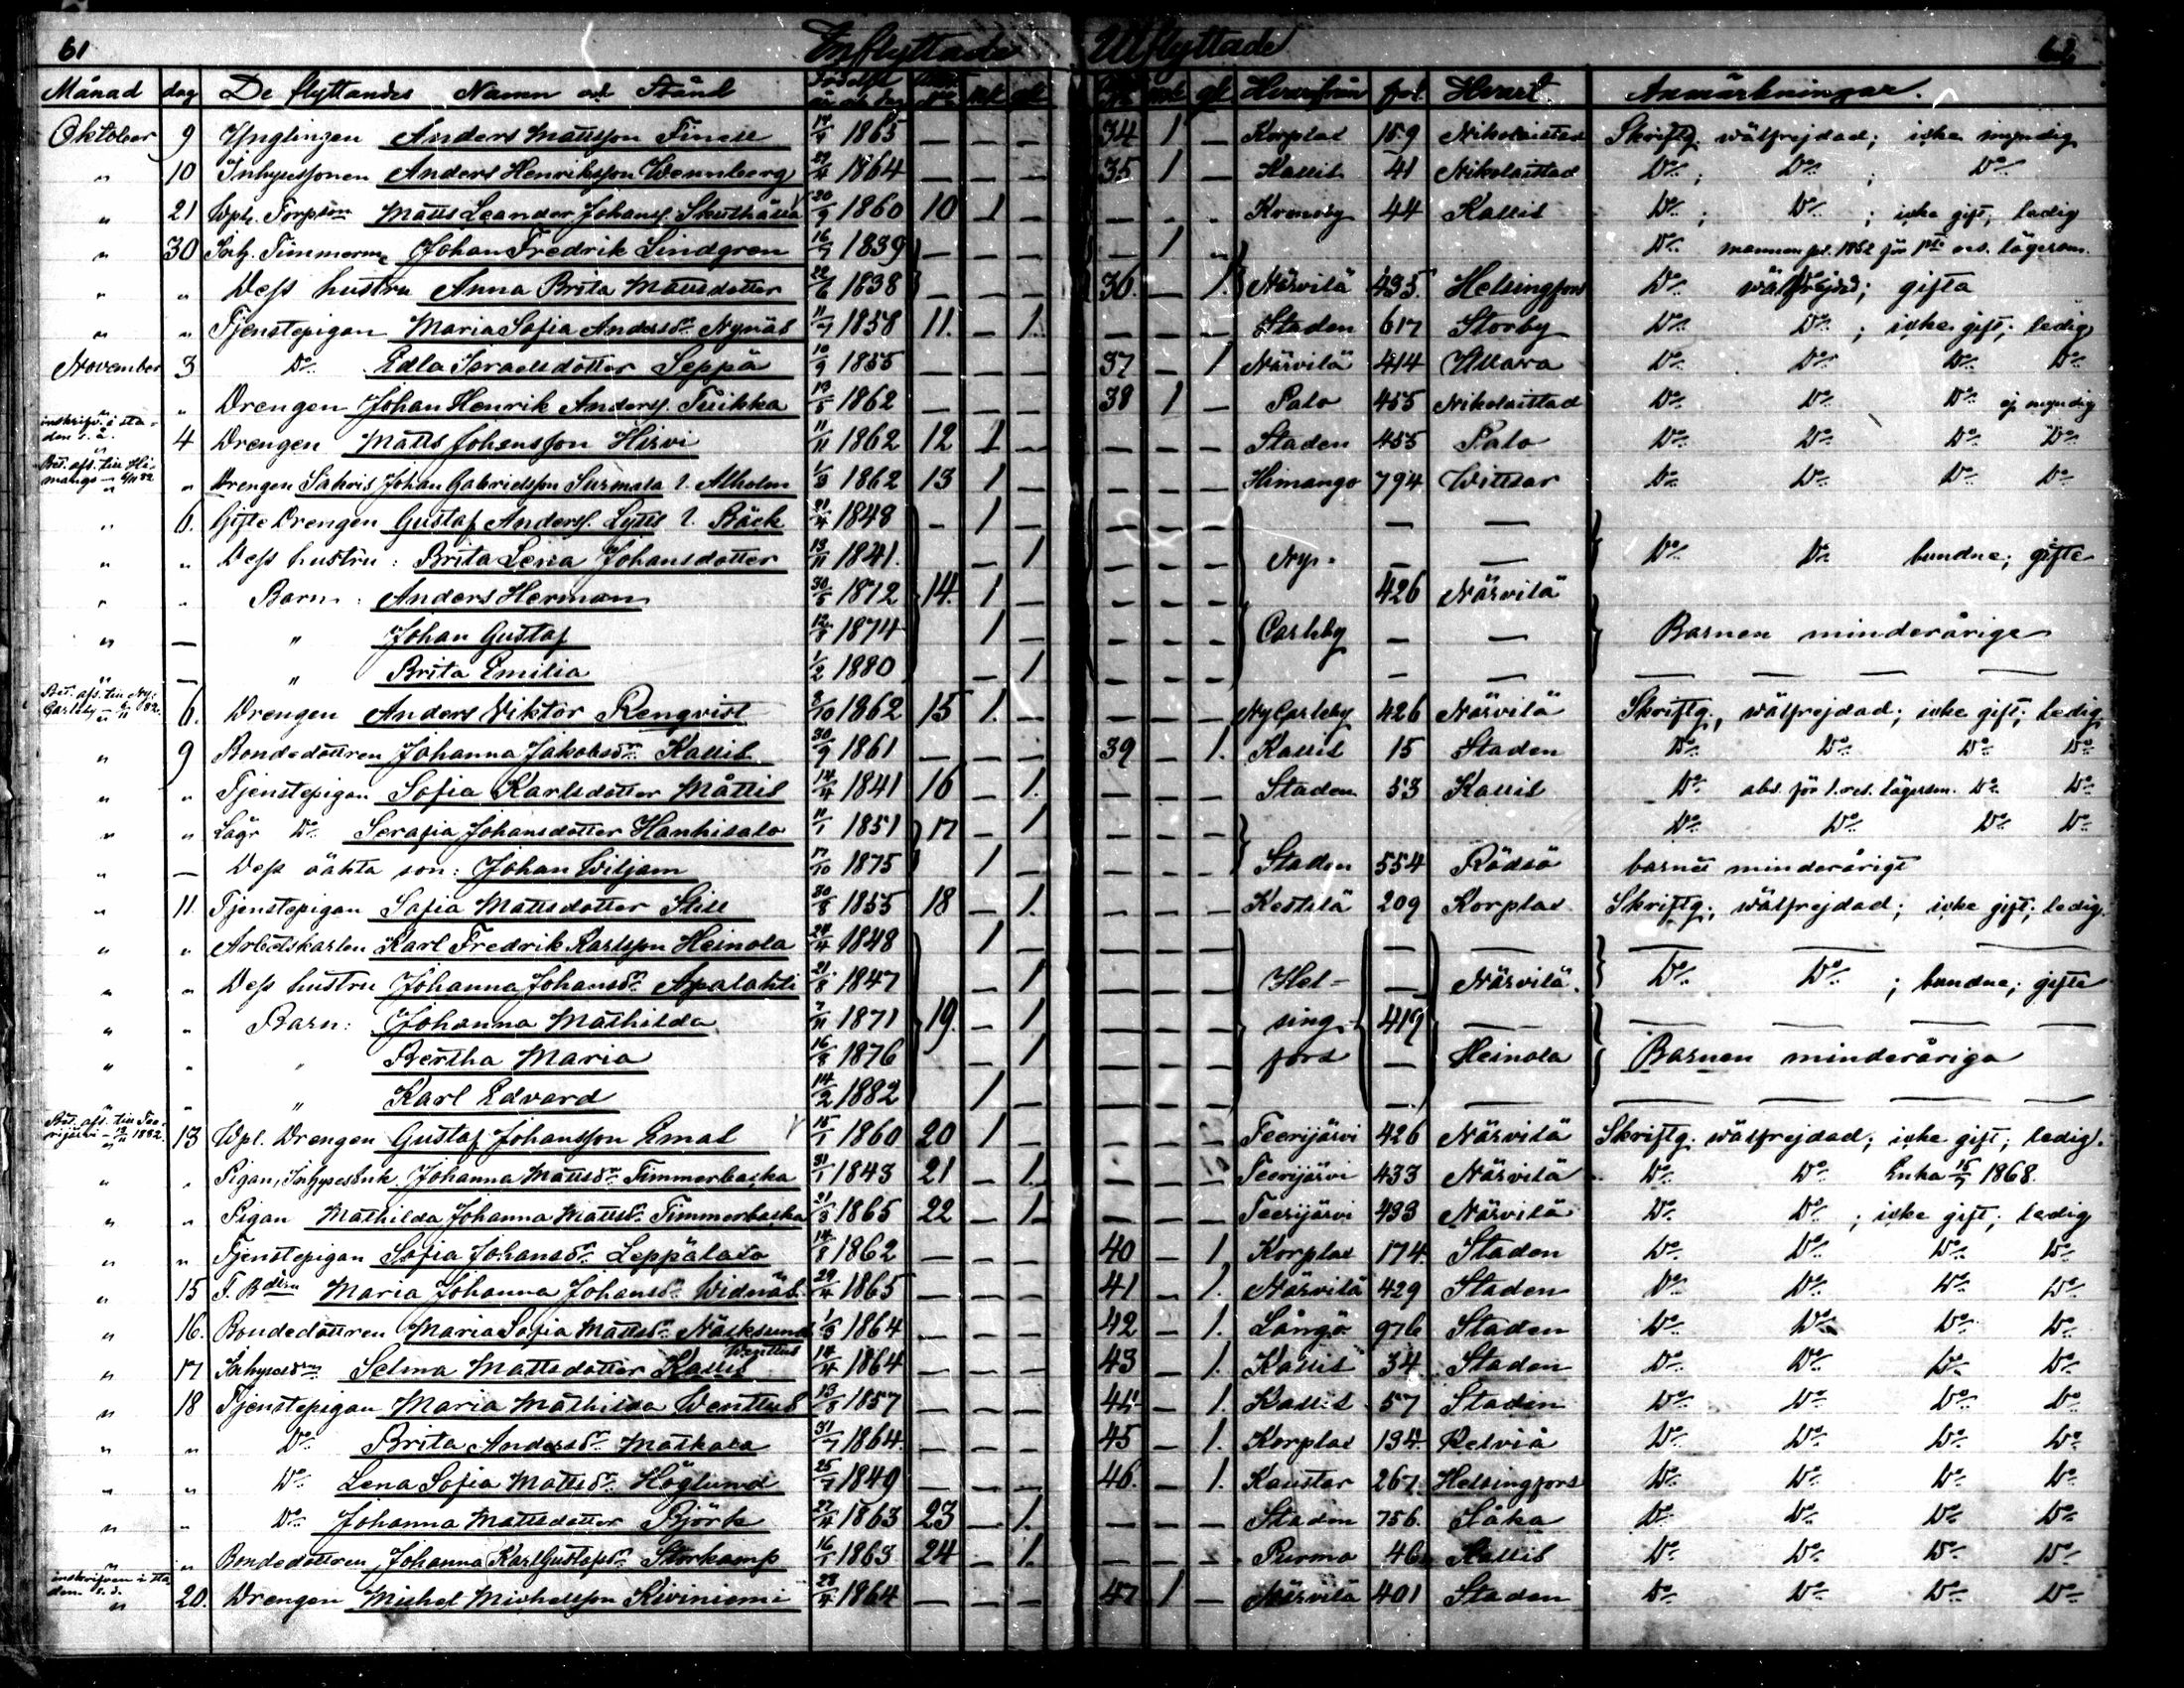 61 Inflyttade Utflyttade 62
Månad dag De flyttandes Namn och Stånd mk qk mk qk Hvarifrån fol. Hvart Anmärkningar.
Oktober 9 Ynglingen Anders Mattsson Finell 1865 — — — 34 1 — Korplax 159 Nikolaistad Skriftg. wälfrejdad; icke myndig
" 10 Inhysessonen Anders Henriksson Wennberg 1864 — — — 35 1 — Kallis 41 Nikolaistad Do; Do; Do
" 21 Wpl. Torpson Matts Leander Johanss. 1860 10 1 — — — — 44 Kallis Do; Do; icke gift; ledig
" 30 Inh. Timmerm. Johan Fredrik Lindgren 16/7 1839 — — — — 1 — Do mannen 1882 för 1sta lägersm.
" " Dess hustru Anna Brita Mattsdotter 22/6 1838 — — — 36. — 1. Närvilä 435 Helsingfors Do wälfrejdad; gifta
" " Tjenstepigan Maria Sofia Andersdr Nynäs 11/7 1858 11. — 1. — — — Staden 617 Storby Do Do; icke gift; ledig
November 3 Do Edla Israelsdotter Seppä 10/9 1855 — — — 37 — 1 Närvilä 414 Ullava Do Do Do Do
" " Drengen Johan Henrik Anderss. Tuikka 13/5 1862 — — — 38 1 — Palo 455 Nikolaistad Do Do Do ej myndig
inskrifv. i sta-
den s. å. 4 Drengen Matts Johansson Hirvi 11/11 1862 12 1 — — — — Staden 455 Palo Do Do Do Do
Bet. afs. till Hi-
mango 6/11 82 " Drengen Sakris Johan Gabrielsson Surmala l. Alholm 1/3 1862 13 1 — — — — Himango 794 Wittsar Do Do Do Do
" 6. Gifte Drengen Gustaf Anderss. Lytts l. Bäck 21/4 1848 — 1 — — — — — —
" " Dess hustru: Brita Lena Johansdotter 13/11 1841. — 1 — — — Ny- — — Do Do bundne; gifte
" " Barn: Anders Herman 30/5 1872 14. 1 — — — — 426 Närvilä
" — " Johan Gustaf 12/8 1874 1 — — — — Carleby — — Barnen minderåriga
" — " Brita Emilia 1/2 1880 — 1 — — — — — — — —
Bet. afs. till Ny-
Carleby 6/11 82. 6. Drengen Anders Viktor Renqvist 1862 15 1. — — — — NyCarleby 426 Närvilä Skriftg., wälfrejdad; icke gift; ledig
" 9 Bondedottren Johanna Jakobsdr Kallis 30/9 1861 — — — 39 — 1. Kallis 15 Staden Do Do Do Do
" " Tjenstepigan Sofia Karlsdotter Måttis 14/4 1841 16 — 1. — — — Staden 53 Kallis Do abs. för 1. res. lägersm. Do Do
" " Lägr. Do Serafia Johansdotter Hanhisalo 11/1 1851 17 — 1 — — — Do Do Do Do
" — Dess oäkta son: Johan Wiljam 17/10 1875 1 — — — — Staden 554 Rödsö barnet minderårigt
" 11. Tjenstepigan Sofia Mattsdotter Still 30/8 1855 18 — 1. — — — Kestilä 209 Korplax Skriftg.; wälfrejdad; icke gift; ledig.
" " Arbetskarlen Karl Fredrik Karlsson Heinola 24/4 1848 1 — — — — — — — —
" " Dess hustru Johanna Johansdr Apalahti 21/8 1847 — 1 — — — Hel- — Närvilä. Do Do; bundne; gifte
" " Barn: Johanna Mathilda 7/11 1871 19. — 1 — — — sing- 419 — — — — —
" " " Bertha Maria 16/8 1876 — 1 — — — fors — Heinola Barnen minderåriga
" " " Karl Edvard 14/2 1882 1 — — — — — — — — — —
Bet. afs. till Tee-
rijärvi 13/11 1882. 13 Wpl. Drengen Gustaf Johansson Emas 15/1 1860 20 1 — — — — Teerijärvi 426 Närvilä Skriftg. wälfrejdad; icke gift; ledig.
" " Pigan, Inhysesenk. Johanna Mattsdr Timmerbacka 31/1 1843 21 — 1. — — — Teerijärvi 433 Närvilä Do Do Enka 1868.
" " Pigan Mathilda Johanna Mattsdr Timmerbacka 21/3 1865 22 — 1. — — — Teerijärvi 433 Närvilä Do Do; icke gift; ledig
" " Tjenstepigan Sofia Johansdr Leppälaks 14/8 1862 — — — 40 — 1 Korplax 174 Staden Do Do Do Do
" 15 Maria Johanna Johansdr Widnäs 29/4 1865 — — — 41 — 1. Närvilä 429 Staden Do Do Do Do
" 16. Bondedottren Maria Sofia Mattsdr Näcksund 1/3 1864 — — — 42 — 1. Långö 976 Staden Do Do Do Do
Wenttus
" 17 Selma Mattsdotter Kallis 14/4 1864 — — — 43 — 1. Kallis 34 Staden Do Do Do Do
" 18 Tjenstepigan Maria Mathilda Wenttus 13/8 1857 — — — 44 — 1. Kallis 57 Staden Do Do Do Do
" " Do Brita Andersdr Maskala 31/7 1864. — — — 45 — 1. Korplax 134. Kelviå Do Do Do Do
" " Do Lena Sofia Mattsdr Höglund 1849 — — — 46. — 1. Kaustar 267. Helsingfors Do Do Do Do
" " Do Johanna Mattsdotter Björk 27/4 1863 23 — 1. — — — Staden 756. Såka Do Do Do Do
" " Bondedottren Johanna Karl Gustafsdr Storkamp 16/1 1863 24 — 1. — — — Purmo 46 Kallis Do Do Do Do
inskrifven i sta-
den s. å. 20. Drengen Michel Michelsson Kiviniemi 28/4 1864 — — — 47 1 — Närvilä 401 Staden Do Do Do Do